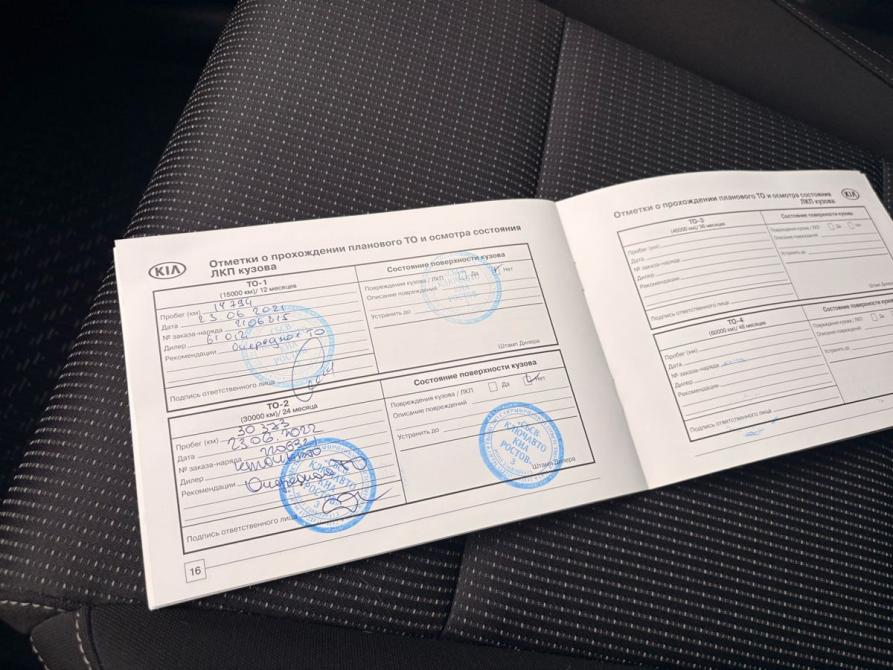 KIA
Отметки о прохождении планового ТО и осмотра состояния
ЛКП кузова
ТО-1
(15000 км)/ 12 месяцев
Пробег (км) 14794
Дата 23 06 2021
№ заказа-наряда
Дилер 61012
Рекомендации Очередное ТО
Подпись ответственного лица
Состояние поверхности кузова
Повреждения кузова / ЛКП Да Нет
Описание повреждений
Устранить до
Штамп Дилера
КЛЮЧАВТО
КИА
РОСТОВ
ТО-2
(30000 км)/ 24 месяца
Пробег (км) 30373
Дата 23.06.2022
№ заказа-наряда
Дилер
Рекомендации Очередное ТО
Подпись ответственного лица
КЛЮЧАВТО
КИА
РОСТОВ
3
Состояние поверхности кузова
Повреждения кузова / ЛКП Да Нет
Описание повреждений
Устранить до
Штамп Дилера
КЛЮЧАВТО
КИА
РОСТОВ
3
16
Отметки о прохождении планового ТО и осмотра состояния
ЛКП кузова
KIA
ТО-3
(45000 км)/ 36 месяцев
Пробег (км)
Дата
№ заказа-наряда
Дилер
Рекомендации
Подпись ответственного лица
Состояние поверхности кузова
Повреждения кузова / ЛКП Да Нет
Описание повреждений
Устранить до
Штамп Дилера
ТО-4
(60000 км)/ 48 месяцев
Пробег (км)
Дата
№ заказа-наряда
Дилер
Рекомендации
Подпись ответственного лица
Состояние поверхности кузова
Повреждения кузова / ЛКП Да
Описание повреждений
Устранить до